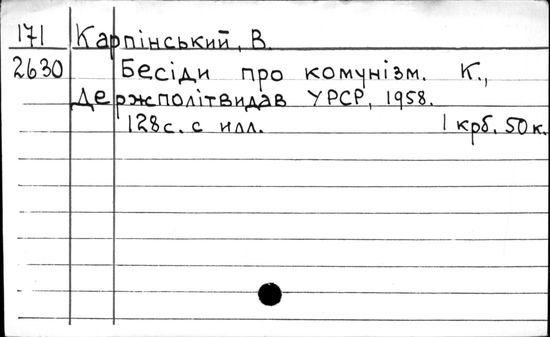 171 Карпінський, В.
2630 Бесіди про комунізм. К.,
Держполітвидав УРСР, 1958.
128с. с илл. 1 крб. 50 к.